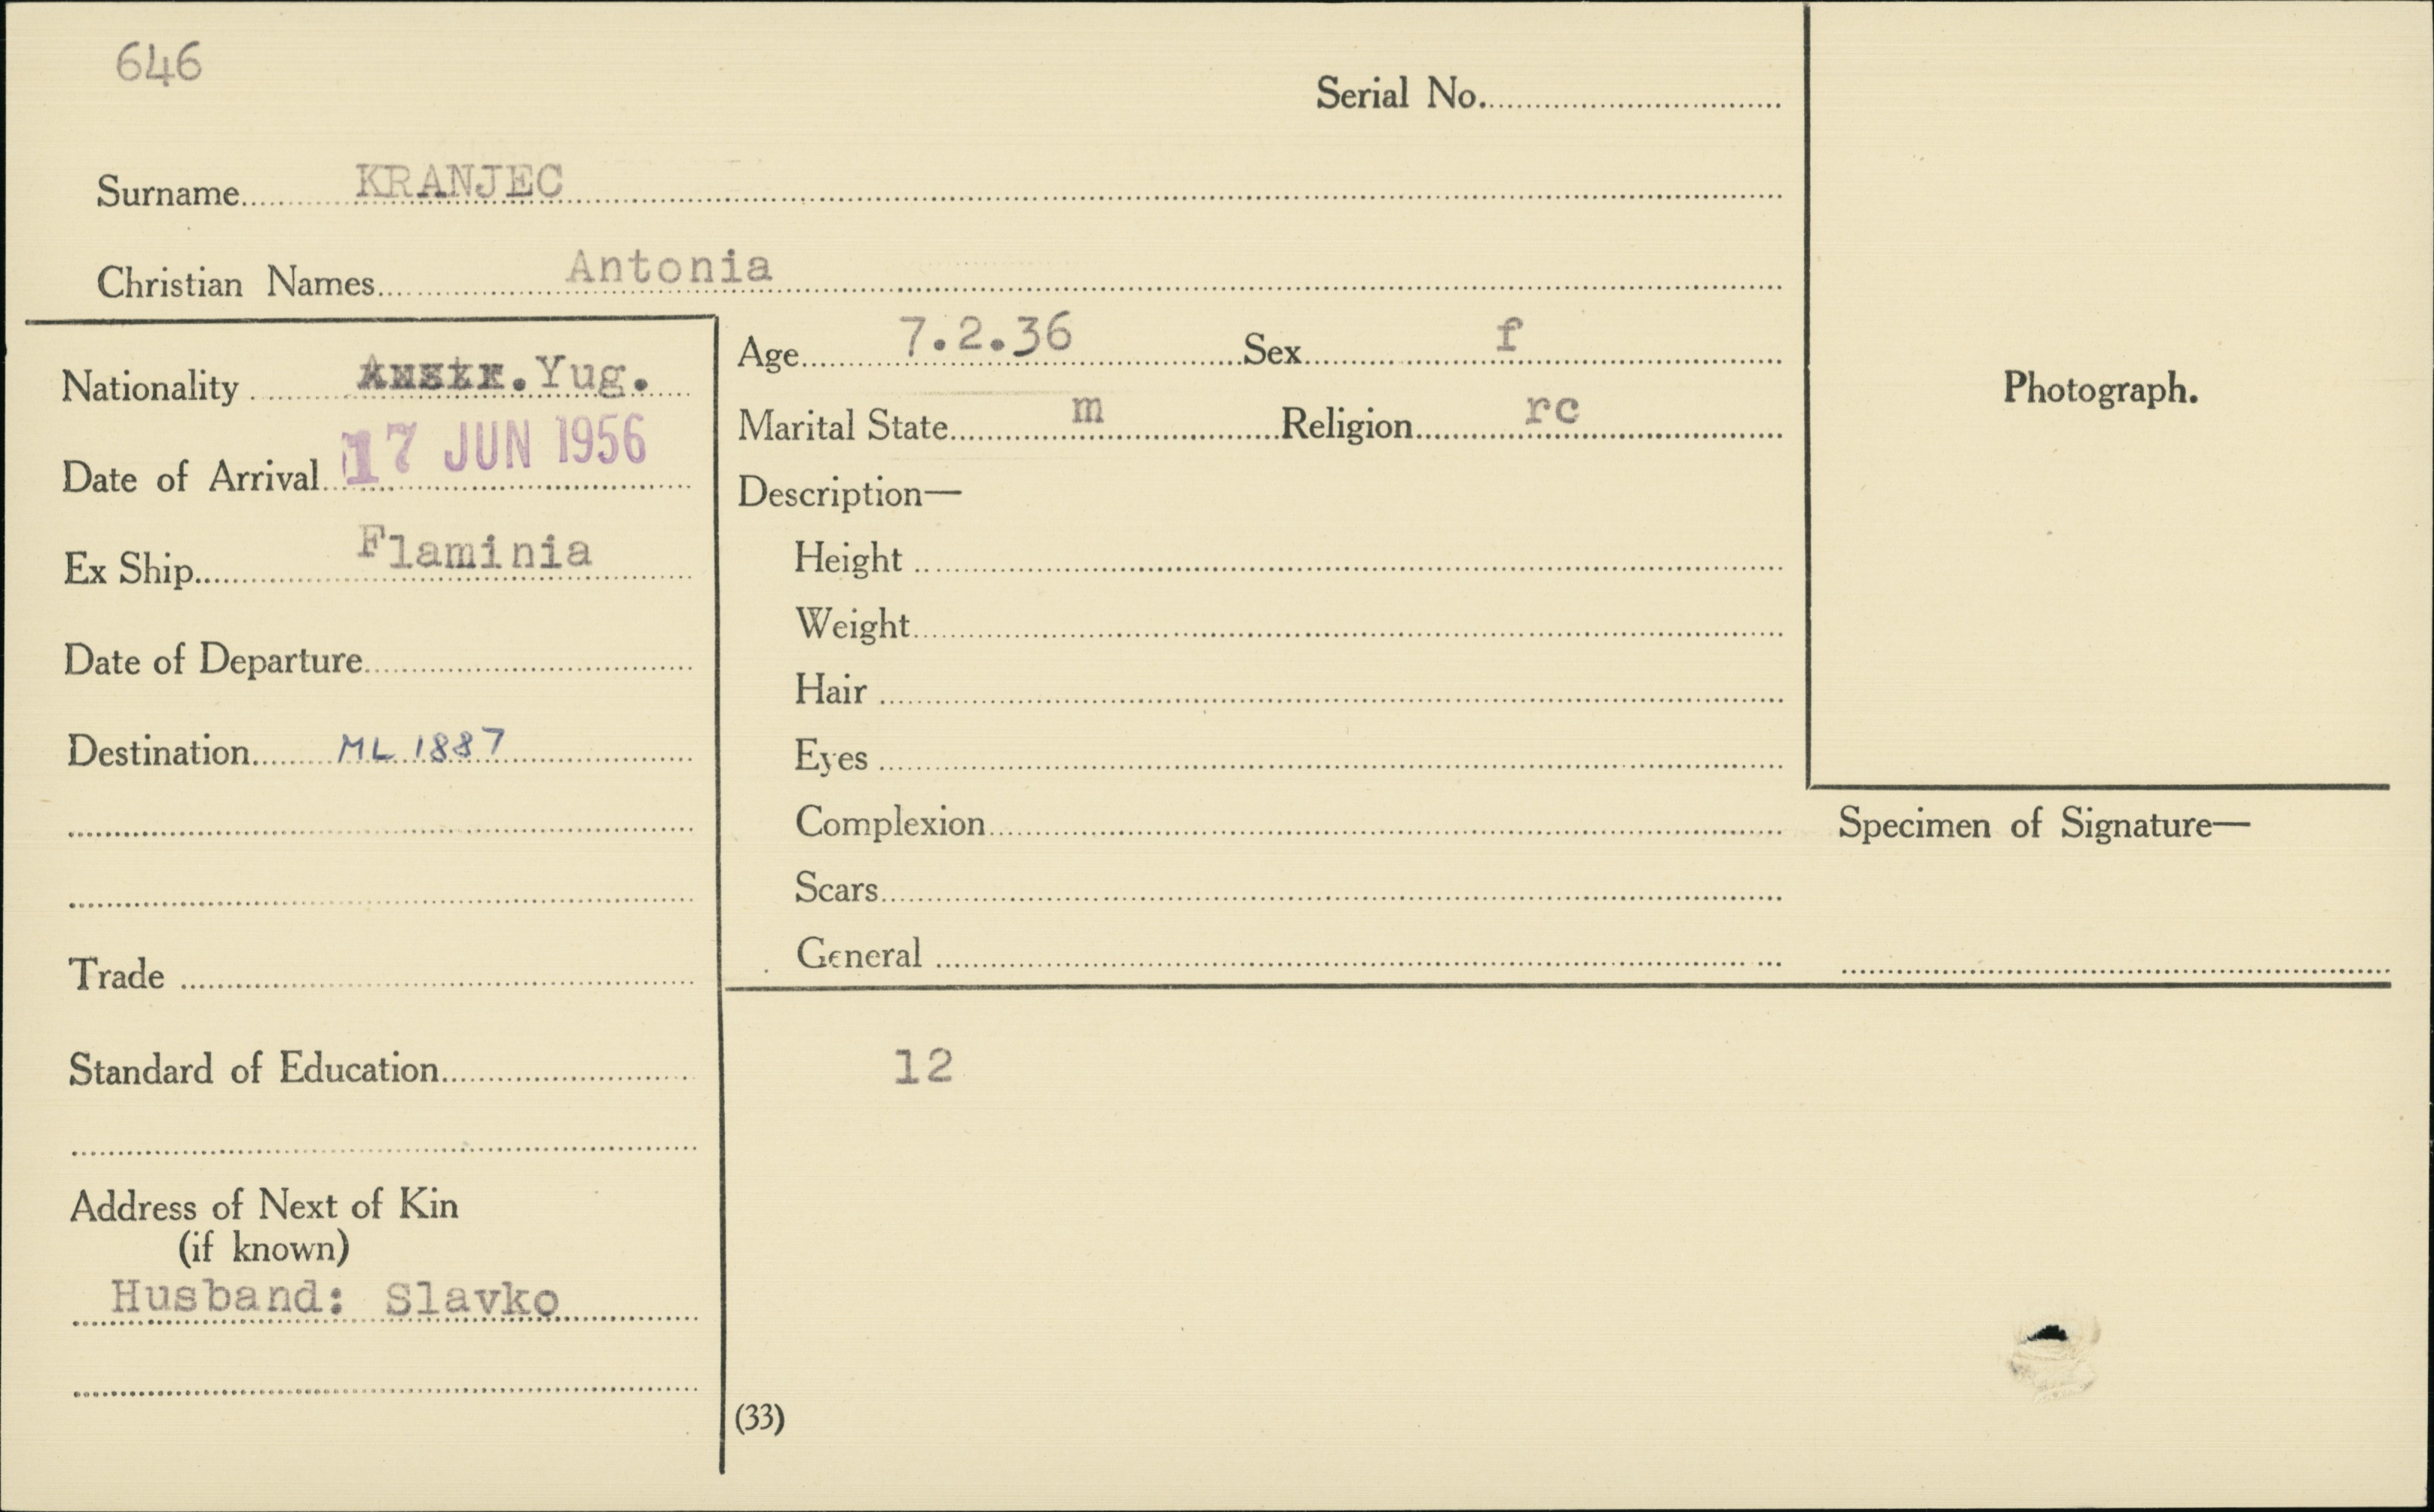 646
Serial No.
Surname KRANJEC
Christian Names Antonia
Nationality Yug.
Date of Arrival 17 JUN 1956
Ex Ship Flaminia
Date of Departure
Destination ML 1887
Trade
Standard of Education
Address of Next of Kin
(if known)
Husband: Slavko
Age 7.2.36 Sex f
Marital State m Religion rc
Description—
Height
Weight
Hair
Eyes
Complexion
Scars
General
12
(33)
Photograph.
Specimen of Signature—